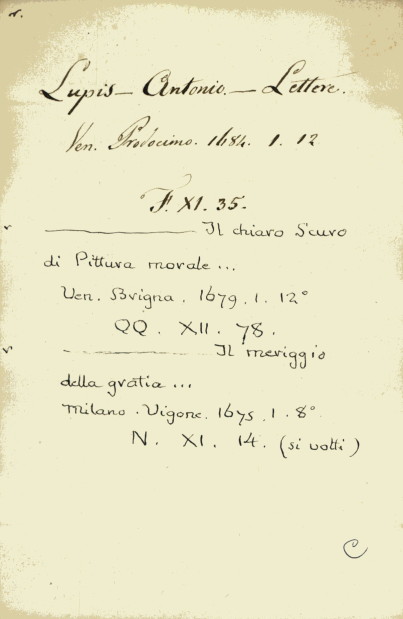 Lupis - Antonio. - Lettere.
Ven. Prodocimo. 1684. 1. 12
F. XI. 35.
Il chiaro Scuro
di Pittura morale...
Ven. Brigna. 1679. 1. 12°
QQ. XII. 78.
Il meriggio
della gratia...
Milano. Vigone. 1675. 1. 8°
N. XI. 14. (si volti)
C